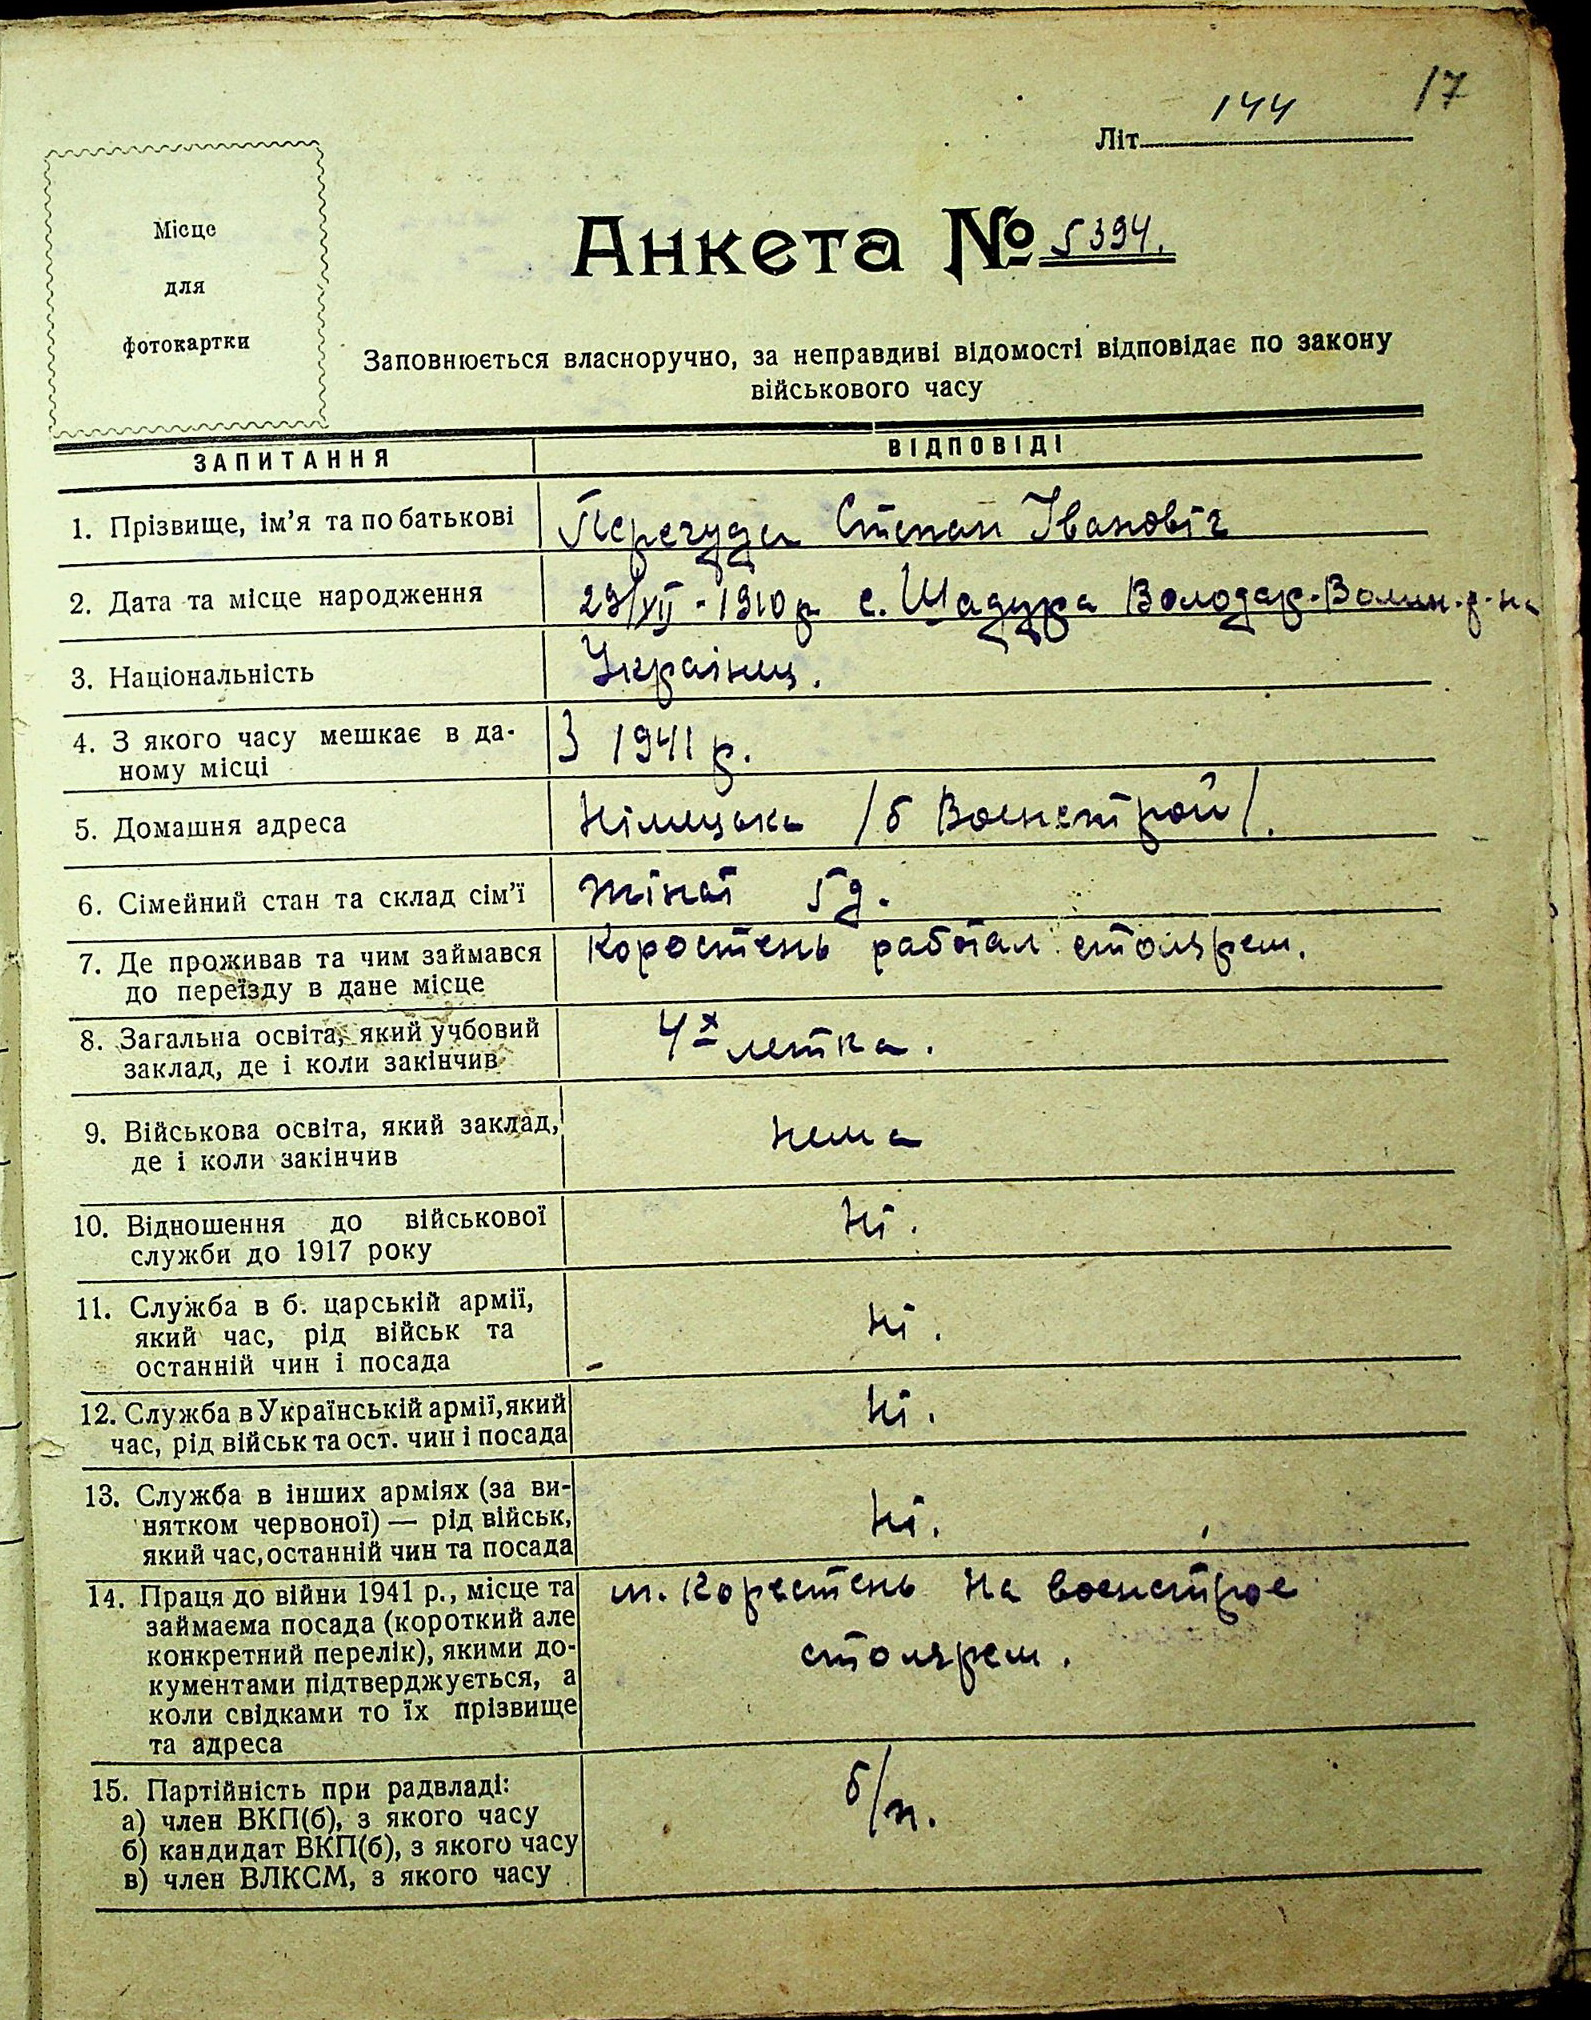 17
Літ 144
Місце
для
фотокартки
Анкета № 5394.
Заповнюється власноручно, за неправдиві відомості відповідає по закону
військового часу
ЗАПИТАННЯ ВІДПОВІДІ
1. Прізвище, ім'я та по батькові Перегуда Степан Івановіч
2. Дата та місце народження 29/XII - 1910 р с. Шадура Володар-Волин. р-на
3. Національність Украінец.
4. З якого часу мешкає в да- З 1941 р.
ному місці
5. Домашня адреса Німецька /б Военстрой/.
6. Сімейний стан та склад сім'ї жінат 5 д.
7. Де проживав та чим займався Коростень работал столярем.
до переїзду в дане місце
8. Загальна освіта, який учбовий 4х летка.
заклад, де і коли закінчив
9. Військова освіта, який заклад, нема
де і коли закінчив
10. Відношення до військової Ні.
служби до 1917 року
11. Служба в б. царській армії,
який час, рід військ та Ні.
останній чин і посада
12. Служба в Українській армії, який Ні.
час, рід військ та ост. чин і посада
13. Служба в інших арміях (за ви-
нятком червоної) — рід військ, Ні.
який час, останній чин та посада
14. Праця до війни 1941 р., місце та м. Коростень на военстрое
займаєма посада (короткий але
конкретний перелік), якими до- столярем.
кументами підтверджується, а
коли свідками то їх прізвище
та адреса
15. Партійність при радвладі: б/п.
а) член ВКП(б), з якого часу
б) кандидат ВКП(б), з якого часу
в) член ВЛКСМ, з якого часу